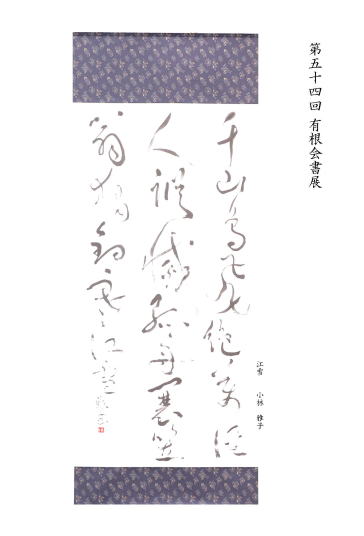 第五十四回 有根会書展
江雪 小林 雅子
千山鳥飛絶萬徑
人蹤滅孤舟蓑笠
翁獨釣寒江雪